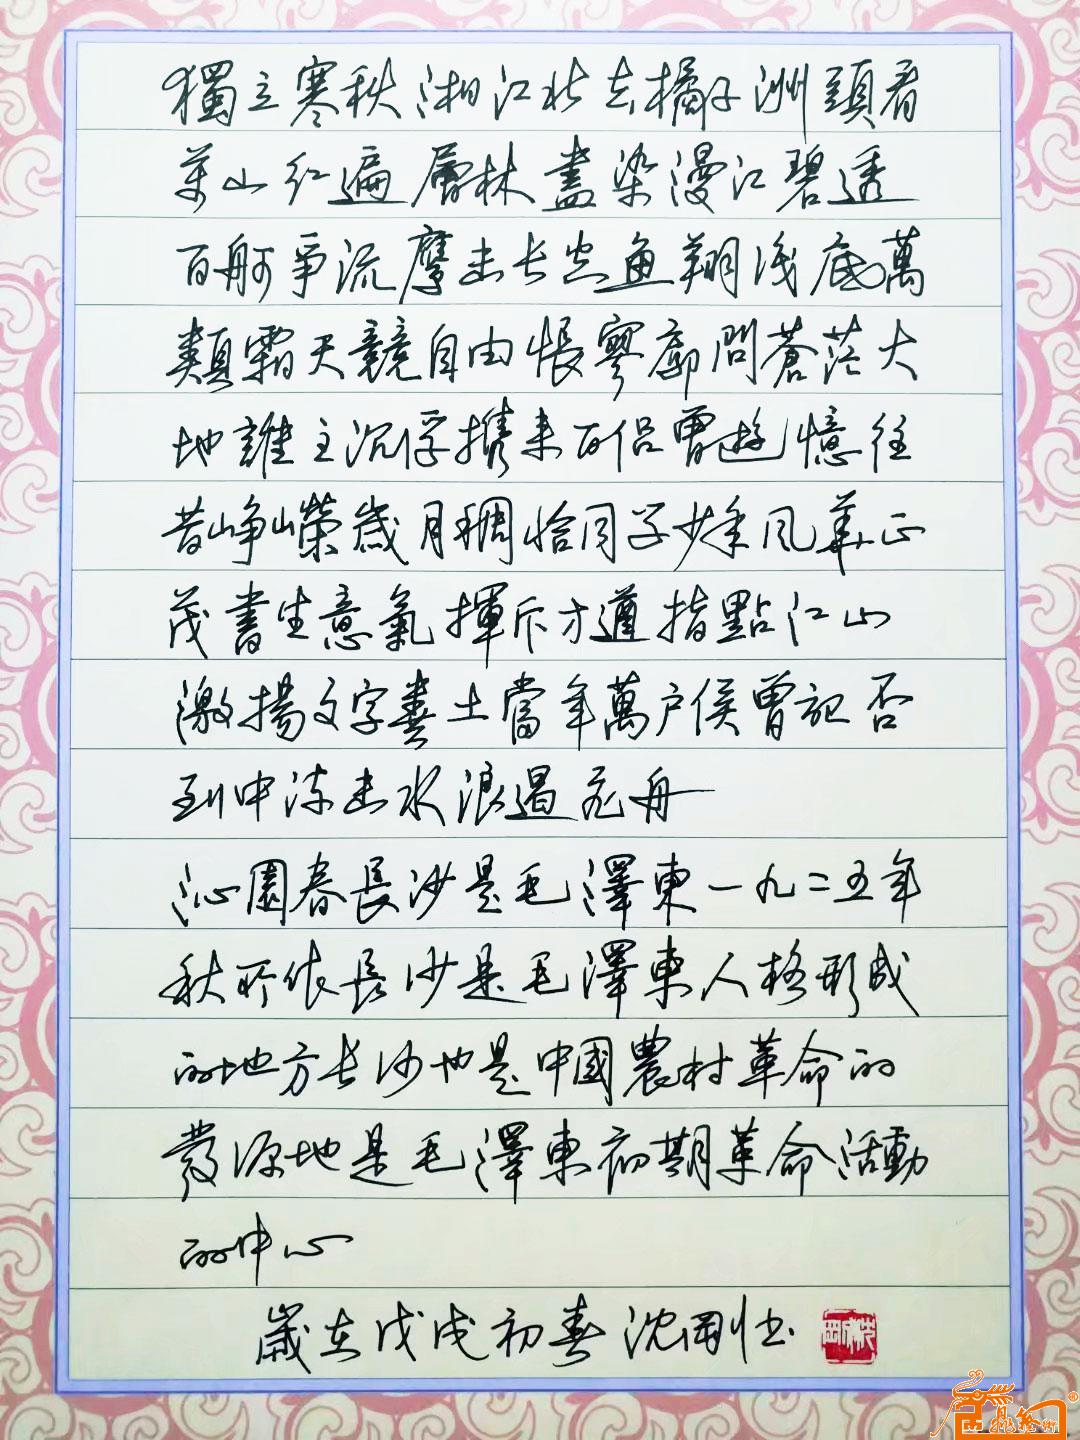 獨立寒秋湘江北去橘子洲頭看
萬山红遍層林盡染漫江碧透
百舸爭流鹰击长空鱼翔浅底萬
類霜天競自由悵寥廓問蒼茫大
地誰主沉浮携来百侣曾遊憶往
昔崢嶸歲月稠恰同学少年风華正
茂書生意氣揮斥方遒指點江山
激揚文字粪土當年萬户侯曾記否
到中流击水浪遏飛舟
沁園春長沙是毛澤東一九二五年
秋所作長沙是毛澤東人格形成
的地方长沙也是中國農村革命的
發源地是毛澤東初期革命活動
的中心
歲在戊戌初春沈剛书